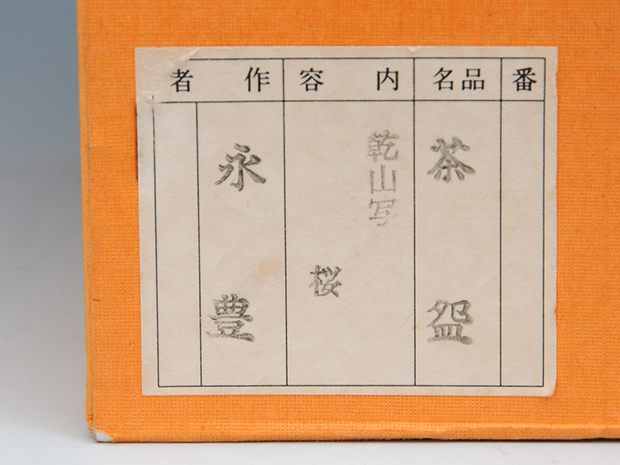 番
品名
内容
作者
茶盌
乾山写
桜
永豊